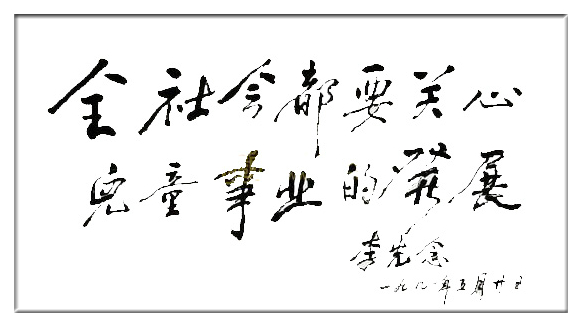 全社会都要关心
兒童事业的發展
李先念
一九八一年五月廿日